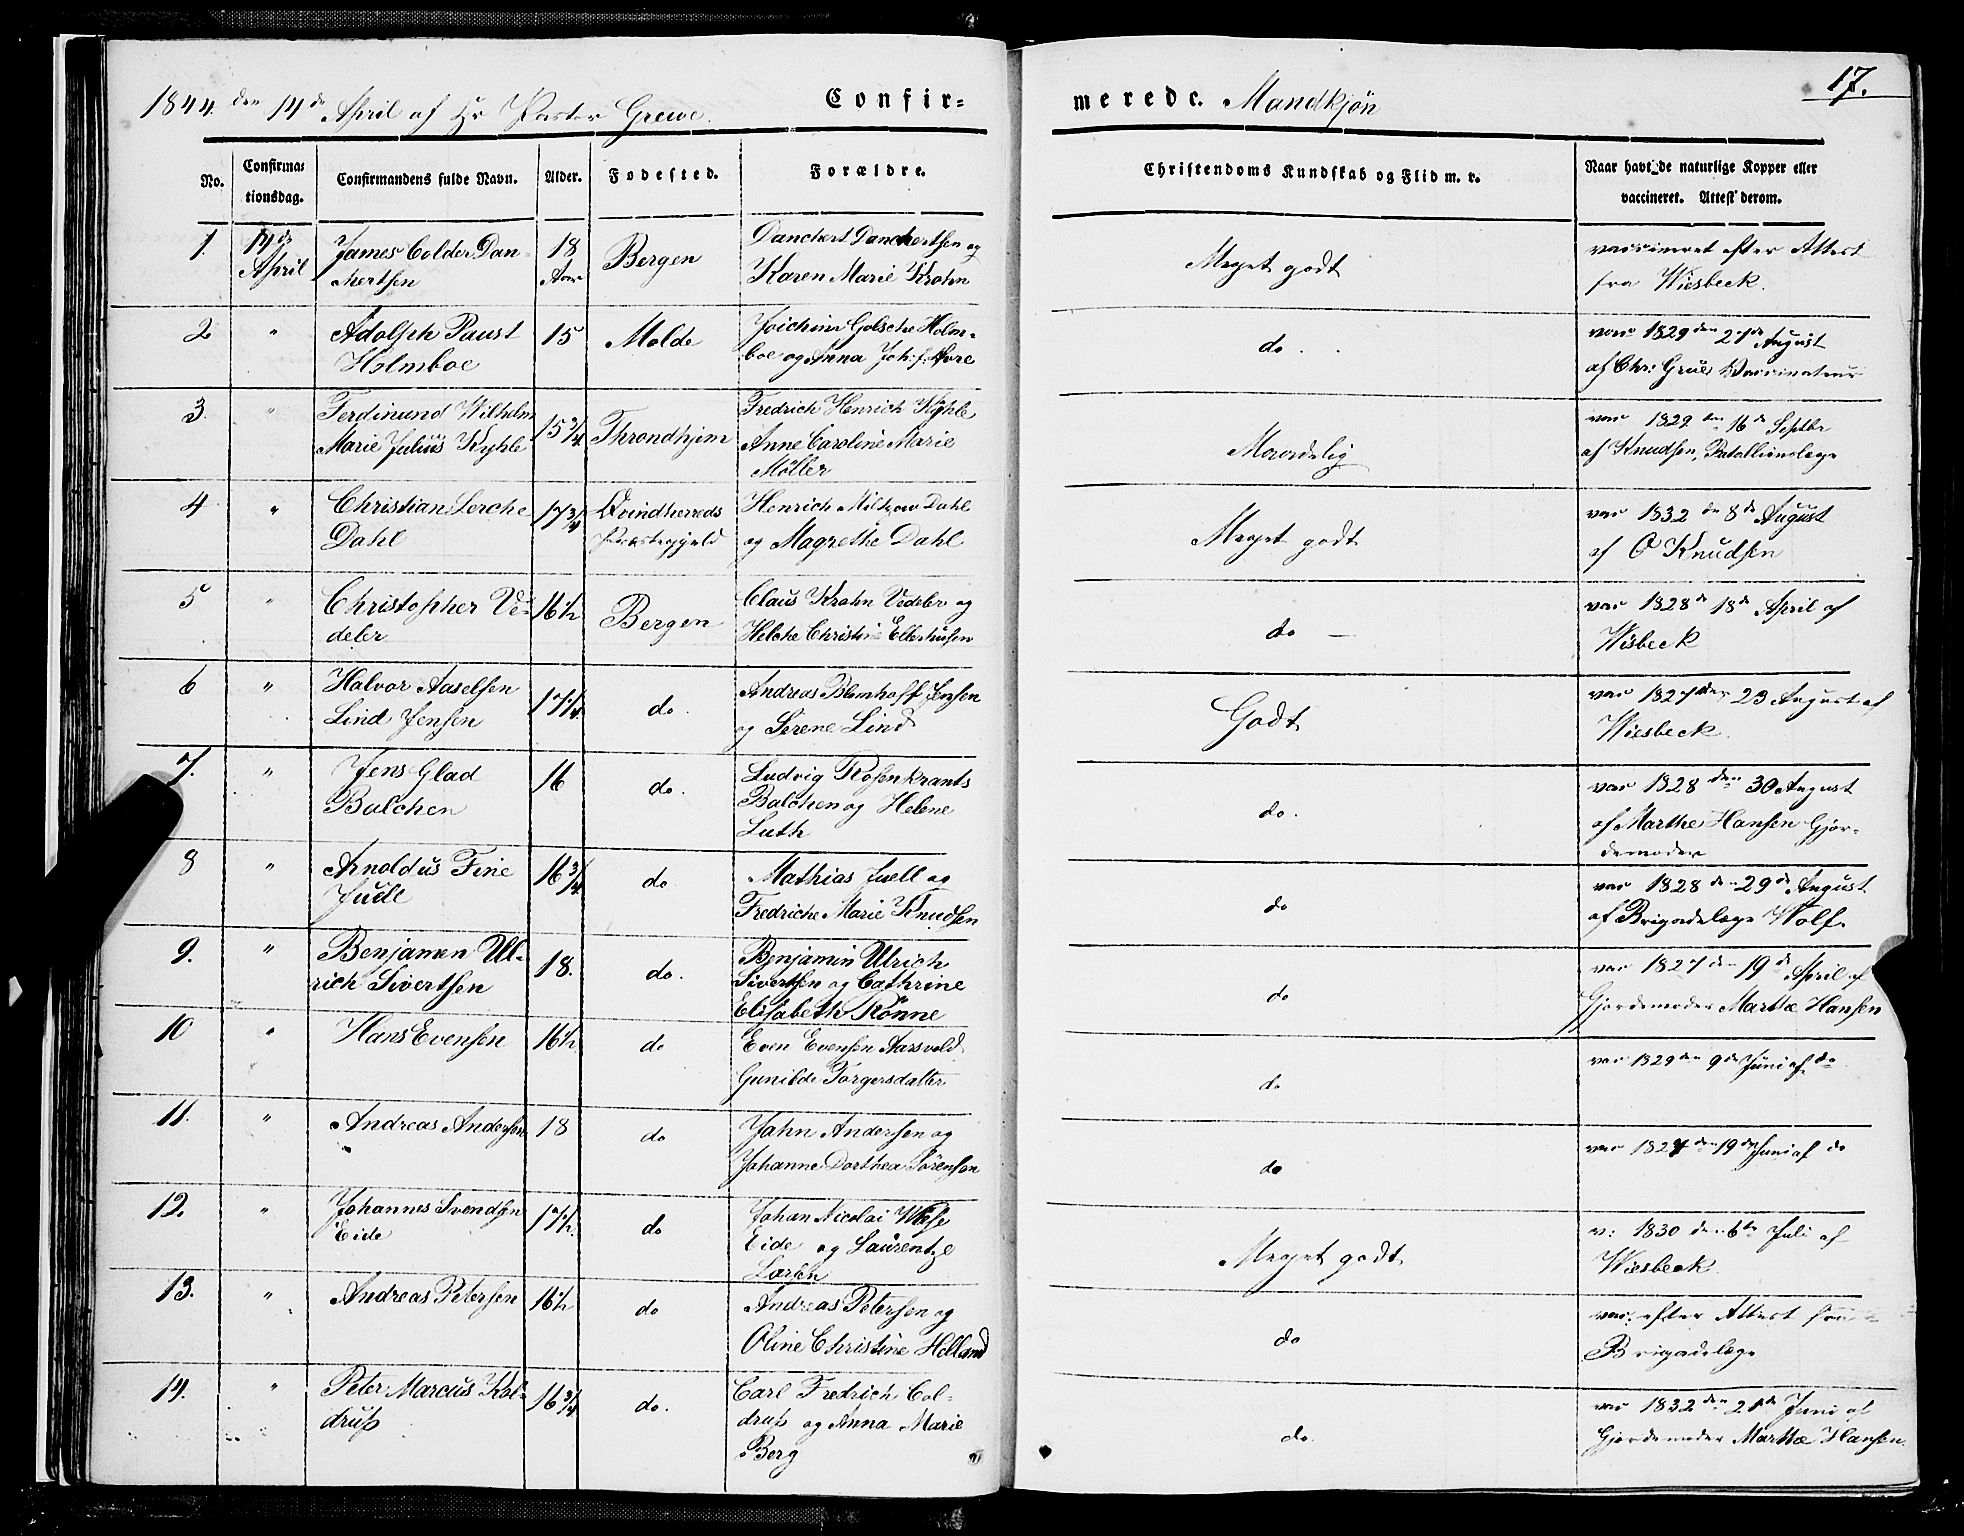 1844. den 14de April af Hr Pastor Grewe.
Confir-
meredc. Mandkjøn
17.
No.
Confirma-
tionsdag.
Confirmandens fulde Navn.
Alder.
Fødested.
Forældre.
Christendoms Kundskab og Flid m. v.
Naar havt de naturlige Kopper eller
vaccineret. Attest derom.
1. 14de James Colder Dan- 18 Bergen Danckert Danckertsen og Meget godt vaccineret efter Attest
April kertsen Aar Karen Marie Krohn fra Wiesbeck.
2 " Adolph Paust 15 Molde Joichim Golsche Holm- do. vac 1829 den 27de August
Holmboe boe og Anna Joh: f. Aure af Chr: Grues Vaccinateur
3. " Ferdinand Wilhelm 15 3/4 Throndhjem Fredrich Henrich Kyhle Maadelig vac 1829 den 16de Septbr
Marie Julius Kyhle Anne Caroline Marie af Knudsen, Batallionslæge
Møller
4 " Christian Lerche 17 3/4 Qvindherreds Henrich Miltzow Dahl Meget godt vac 1832 dn 8de August
Dahl Præstegjeld og Magrethe Dahl af O Knudsen
5 " Christopher Ve- 16 1/2 Bergen Claus Krohn Vedeler og do - vac 1828 dn 18de April af
deler Helche Christine Ellerhusen Wisbeck
6 " Halvor Aaselsen 17 1/4 do. Andreas Blemhoff Jensen Godt vac 1827 den 23 August af
Lind Jensen og Serene Lind Wiesbeck.
7. " Jens Glad 16 do. Ludvig Rosenkrants do. vac 1828 den 30 August
Balchen Balchen og Helene af Marthe Hansen Gjor-
Luth demoder
8 " Arnoldus Fine 16 3/4 do Mathias Juell og do vac 1828 den 29de August
Juell Fredriche Marie Knudsen af Brigadelæge Wolf.
9. " Benjamen Ul- 18. do. Benjamin Ulrich do vac 1827 den 19de April af
rich Sivertsen Sivertsen og Cathrine Gjordemoder Marthe Hansen
Elisabeth Rønne
10 " Hans Evensen 16 1/2 do Even Evensen Aarsvold do vac 1829 den 9de Juni af do
Gunilde Torgersdatter
11. " Andreas Andersen 18 do John Andersen og do vac 1827 den 19de Juni af do
Johanne Dorthea Sørensen
12. " Johannes Svendsen 17 1/2 do Johan Nicolai Wese Meget godt v: 1830 den 6te Juli af
Eide Eide og Laurentze Wiesbeck
Larsen
13. " Andreas Petersen 16 1/2 do Andreas Petersen og do vac: efter Attest fra
Oline Christine Helland Brigadelæge
14. " Peter Marcus Kol- 16 3/4 do. Carl Fredrich Col- do. vac 1832 den 21de Juni af
drup drup og Anna Marie Gjordemoder Marthe Hansen
Berg